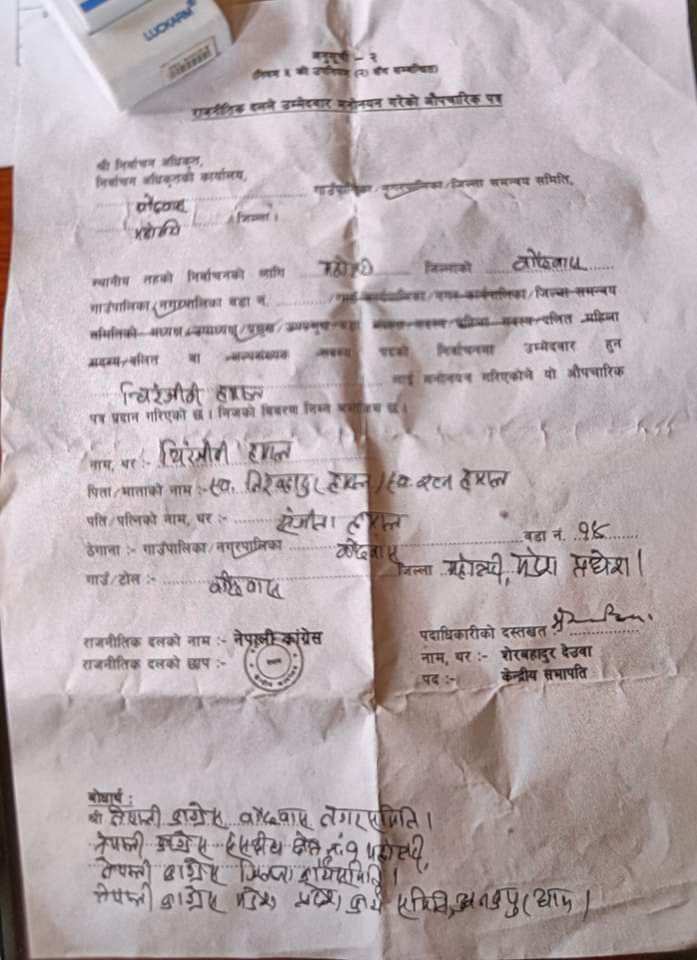 LUCKARM
अनुसूची - २
(नियम ५ को उपनियम (२) सँग सम्बन्धित)
राजनीतिक दलले उम्मेदवार मनोनयन गरेको औपचारिक पत्र
श्री निर्वाचन अधिकृत,
निर्वाचन अधिकृतको कार्यालय,
गाउँपालिका/नगरपालिका/जिल्ला समन्वय समिति,
बर्दिबास
महोत्तरी /जिल्ला ।
स्थानीय तहको निर्वाचनको लागि महोत्तरी जिल्लाको बर्दिबास
गाउँपालिका/नगरपालिका वडा नं. /गाउँ कार्यपालिका/नगर कार्यपालिका/जिल्ला समन्वय
समितिको अध्यक्ष/उपाध्यक्ष/प्रमुख/उपप्रमुख/वडा अध्यक्ष/सदस्य/महिला सदस्य/दलित महिला
सदस्य/दलित वा अल्पसंख्यक सदस्य पदको निर्वाचनमा उम्मेदवार हुन
चिरंजीवी हमाल लाई मनोनयन गरिएकोले यो औपचारिक
पत्र प्रदान गरिएको छ । निजको विवरण निम्न बमोजिम छ ।
नाम, थर :- चिरंजीवी हमाल
पिता/माताको नाम :- स्व. हमाल/स्व. रत्न हमाल
पति/पत्निको नाम, थर :- हमाल
ठेगाना :- गाउँपालिका/नगरपालिका बर्दिबास वडा नं. १४
गाउँ/टोल :- बर्दिबास जिल्ला महोत्तरी, मधेश ।
राजनीतिक दलको नाम :- नेपाली कांग्रेस
राजनीतिक दलको छाप :-
पदाधिकारीको दस्तखत
नाम, थर :- शेरबहादुर देउवा
पद :- केन्द्रीय सभापति
बोधार्थ :
श्री नेपाली कांग्रेस बर्दिबास नगर समिति ।
नेपाली कांग्रेस क्षेत्र नं. १ महोत्तरी,
नेपाली कांग्रेस जिल्ला कार्यसमिति ।
नेपाली कांग्रेस मधेश प्रदेश कार्य समिति, जनकपुरधाम ।